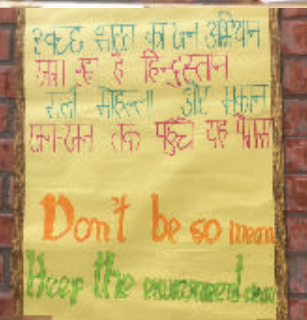 स्वच्छ भारत का जन अभियान
जगा रहा है हिन्दुस्तान
गली मोहल्ला और मकान
जन-जन तक पहुंचे यह
Don't be so mean
Keep the environment clean